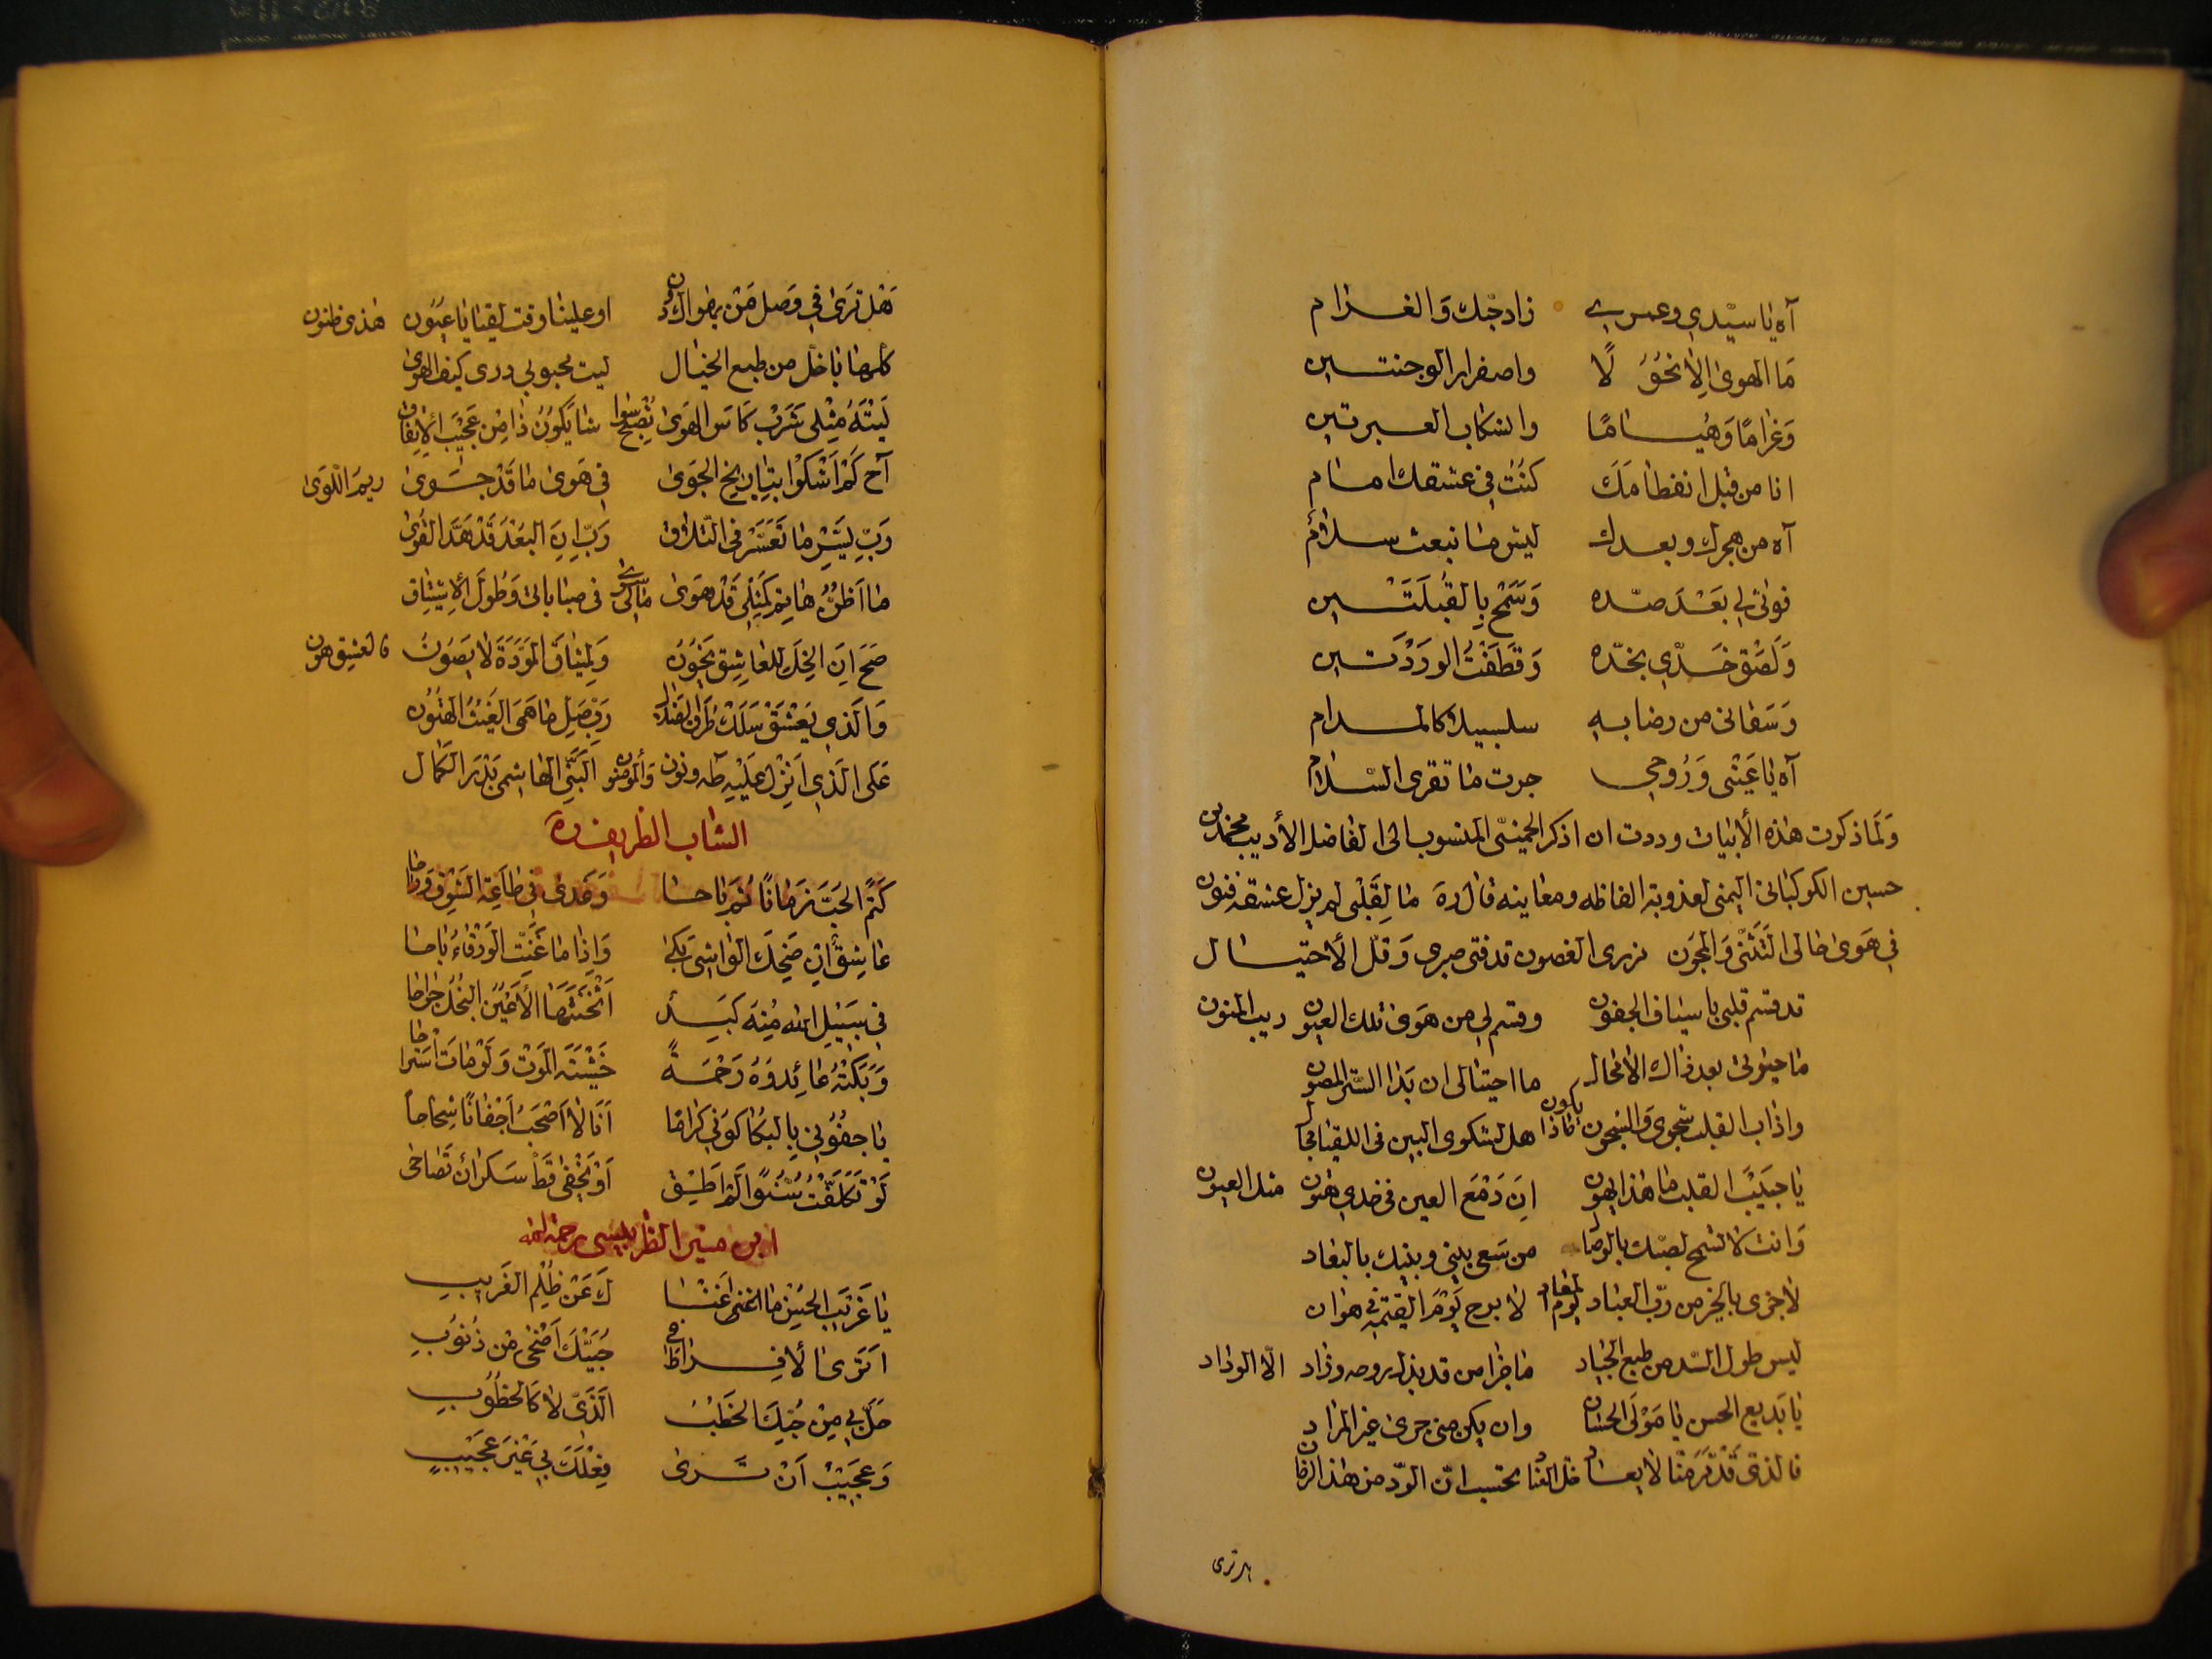 آه يا سيدي وعمري زاد حبك والغرام
ما الهوى إلا نحولًا واصفرار الوجنتين
وغرامًا وهيامًا وانسكاب العبرتين
انا من قبل انفطامك كنت في عشقك امام
آه من هجرك وبعدك ليش ما تبعث سلام
فوتى لي بعد صده وسمح بالقبلتين
ولصق خدي بخده وقطفت الوردتين
وسقاني من رضابه سلسبيلا كالمدام
آه يا عيني وروحي جرت ما تقرى السلام
ولما ذكرت هذه الأبيات وددت ان اذكر الحميني المنسوب الى الفاضل الأديب محمد بن
حسين الكوكباني اليمني لعذوبة الفاظه ومعانيه قال ره ما لقلبي لم يزل عشقه فنون
في هوى حالي التثني والمجون نرزي الغصون قد فني صبري وقل الأحتيال
قد قسم قلبي باسياف الجفون وقسم لي من هوى تلك العيون ريب المنون
ما جنوني بعد ذاك الا نحال ما احتيالي ان بدا السر المصون
واذاب القلب شجوى والشجون ماذا يكون هل لشكوى البين في اللقيا مجال
يا حبيب القلب ما هذا يهون ان دمع العين في خدي هتون مثل العيون
وانت لا تسمح لصبك بالوصال من سعى بيني وبينك بالبعاد
لا جزى بالخير من رب العباد يوم المعاد لا برح يوم القيمة في هوان
ليس طول السد من طبع الجياد ما جزا من قد بذل روحه وزاد الا الوداد
يا بديع الحسن يا مولى الحسان وان يكن مني جرى غير المراد
فالذي قد فر منا لا يعاد خل العناد نحتسب ان الود من هذا الزمان
هل ترى
هل ترى في وصل من يهواك دون او علينا وقت لقيانا عيون هذي ظنون
كلها يا خل من طبع الخيال ليت محبوبي درى كيف الهوى
ليته مثلي شرب كاس الهوى نصبح سوا شا يكون ذا من عجيب الاتفاق
آح كم اشكوا بتباريح الجوى في هوى ما قد حوى ريم اللوى
رب يسر ما تعسر في التلاق رب ان البعد قد هد القوى
ما اظن هايم كمثلي قد هوى مالي سوى في صباباتي وطول الاشتياق
صح ان الخل للعاشق يخون ولميثاق المودة لا يصون فالعشق هون
والذي يعشق سلك طرق الضلال رب صل ما همى الغيث الهتون
على الذي انزل عليه طه ونون والمومنون النبي الهاشمي بدر الكمال
الشاب الظريف ره
كتم الحب زمانا ثم باحا وغدى في طاعة الشوق وراحا
عاشق ان ضحك الواشي بكى واذا ما غنت الورقاء ناحا
في سبيل الله منه كبد اثخنتها الأعين النجل جراحا
وبكته عائدوه رحمة خشية الموت ولو مات استراحا
يا جفوني بالبكا كوني كراما انا لا اصحب اجفانا شحاحا
لو تكلفت سلوا لم اطق او يخفى قط سكران تصاحى
ابن منير الطرابلسي رحمه الله
يا غريب الحسن ما اغنا ك عن ظلم الغريب
اترى الافراط في حبيك اضحى من ذنوب
حل بي من حبك الخطب الذي لا كالخطوب
وعجيب ان ترى فعلك بي غير عجيب